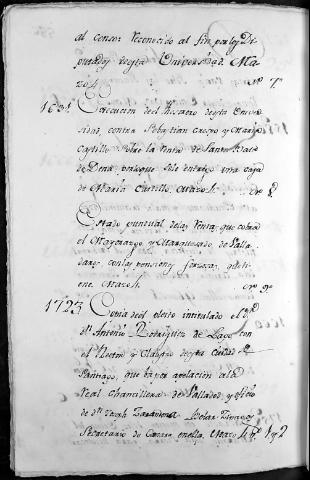 al censo: reconocido al fin por los Di
putados desta Universidad. Ma
zo 4 Nº 7º
1631 Execucion del Thesorero desta Univer
sidad, contra Sebastian Crespo y Maria
Castillo sobre la renta de Santa Baia
de Dena, porlaque sele entrego una casa
de Maria Castillo. Mazo
Estado puntual delas Rentas, que cobra
el Mayorazgo, y Marquesado de Valla
dares, con las pensiones, forzosas, que ti
ene. Mazo Nº
1723 Copia del pleito intitulado el
dn. Antonio Rodriguez de Lago, con
el Rector y Claustro desta ciudad de
Santiago, que va por apelacion ala
Real Chancilleria de Valladolid, y oficio
de dn. 
Secretario de Camara enella. Mazo 4 y 2